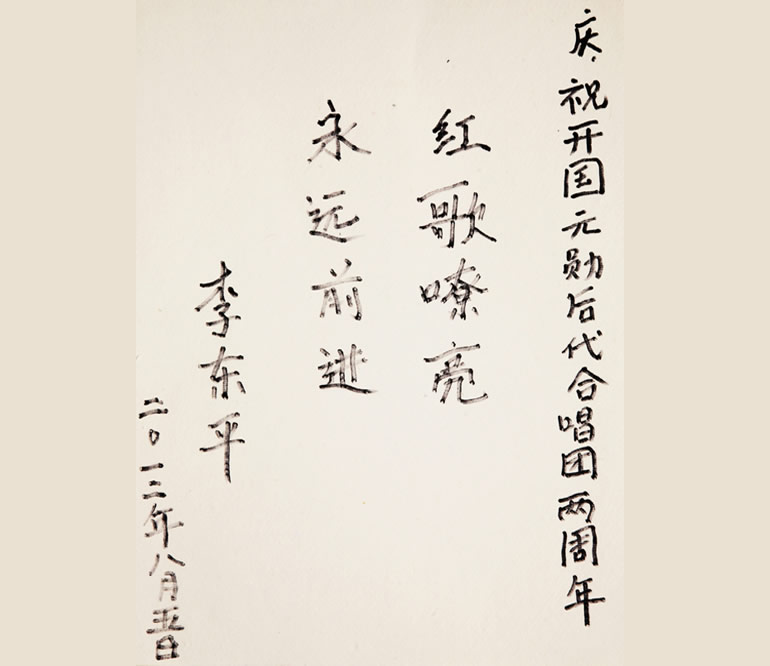 庆祝开国元勋后代合唱团两周年
红歌嘹亮
永远前进
李东平
二〇一二年八月五日